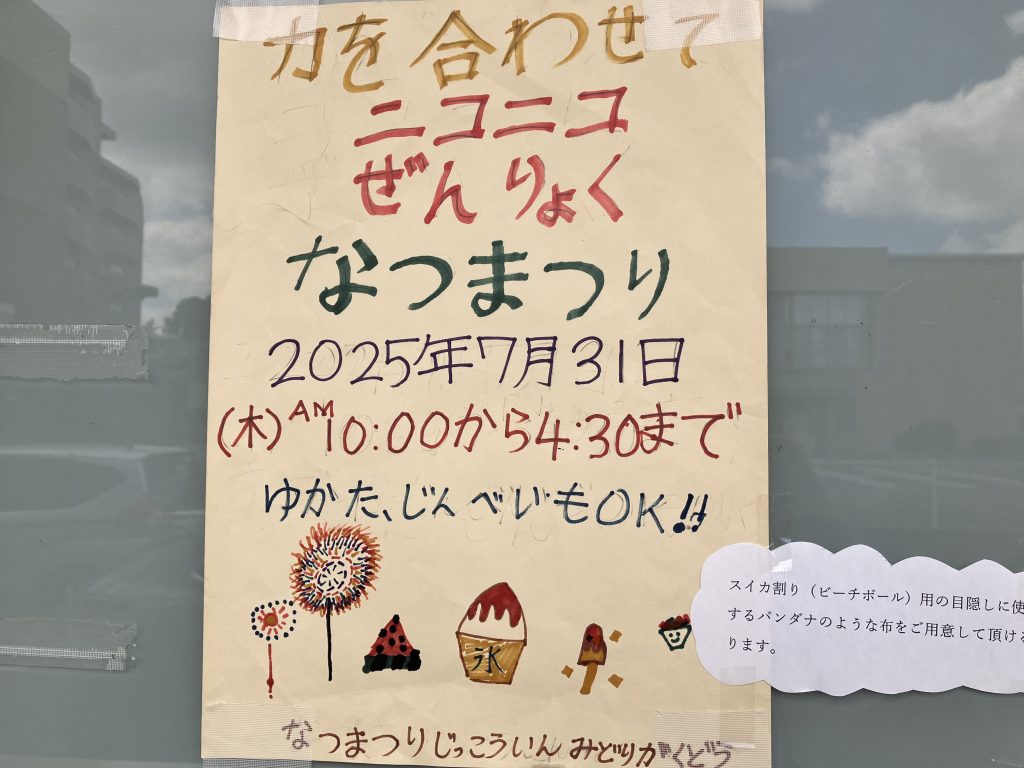 力を合わせて
ニコニコ
ぜんりょく
なつまつり
2025年7月31日
(木)AM10:00から4:30まで
ゆかた、じんべいもOK!!
氷
スイカ割り（ビーチボール）用の目隠しに使
するバンダナのような布をご用意して頂ける
ります。
なつまつりじっこういん みどりがくどう